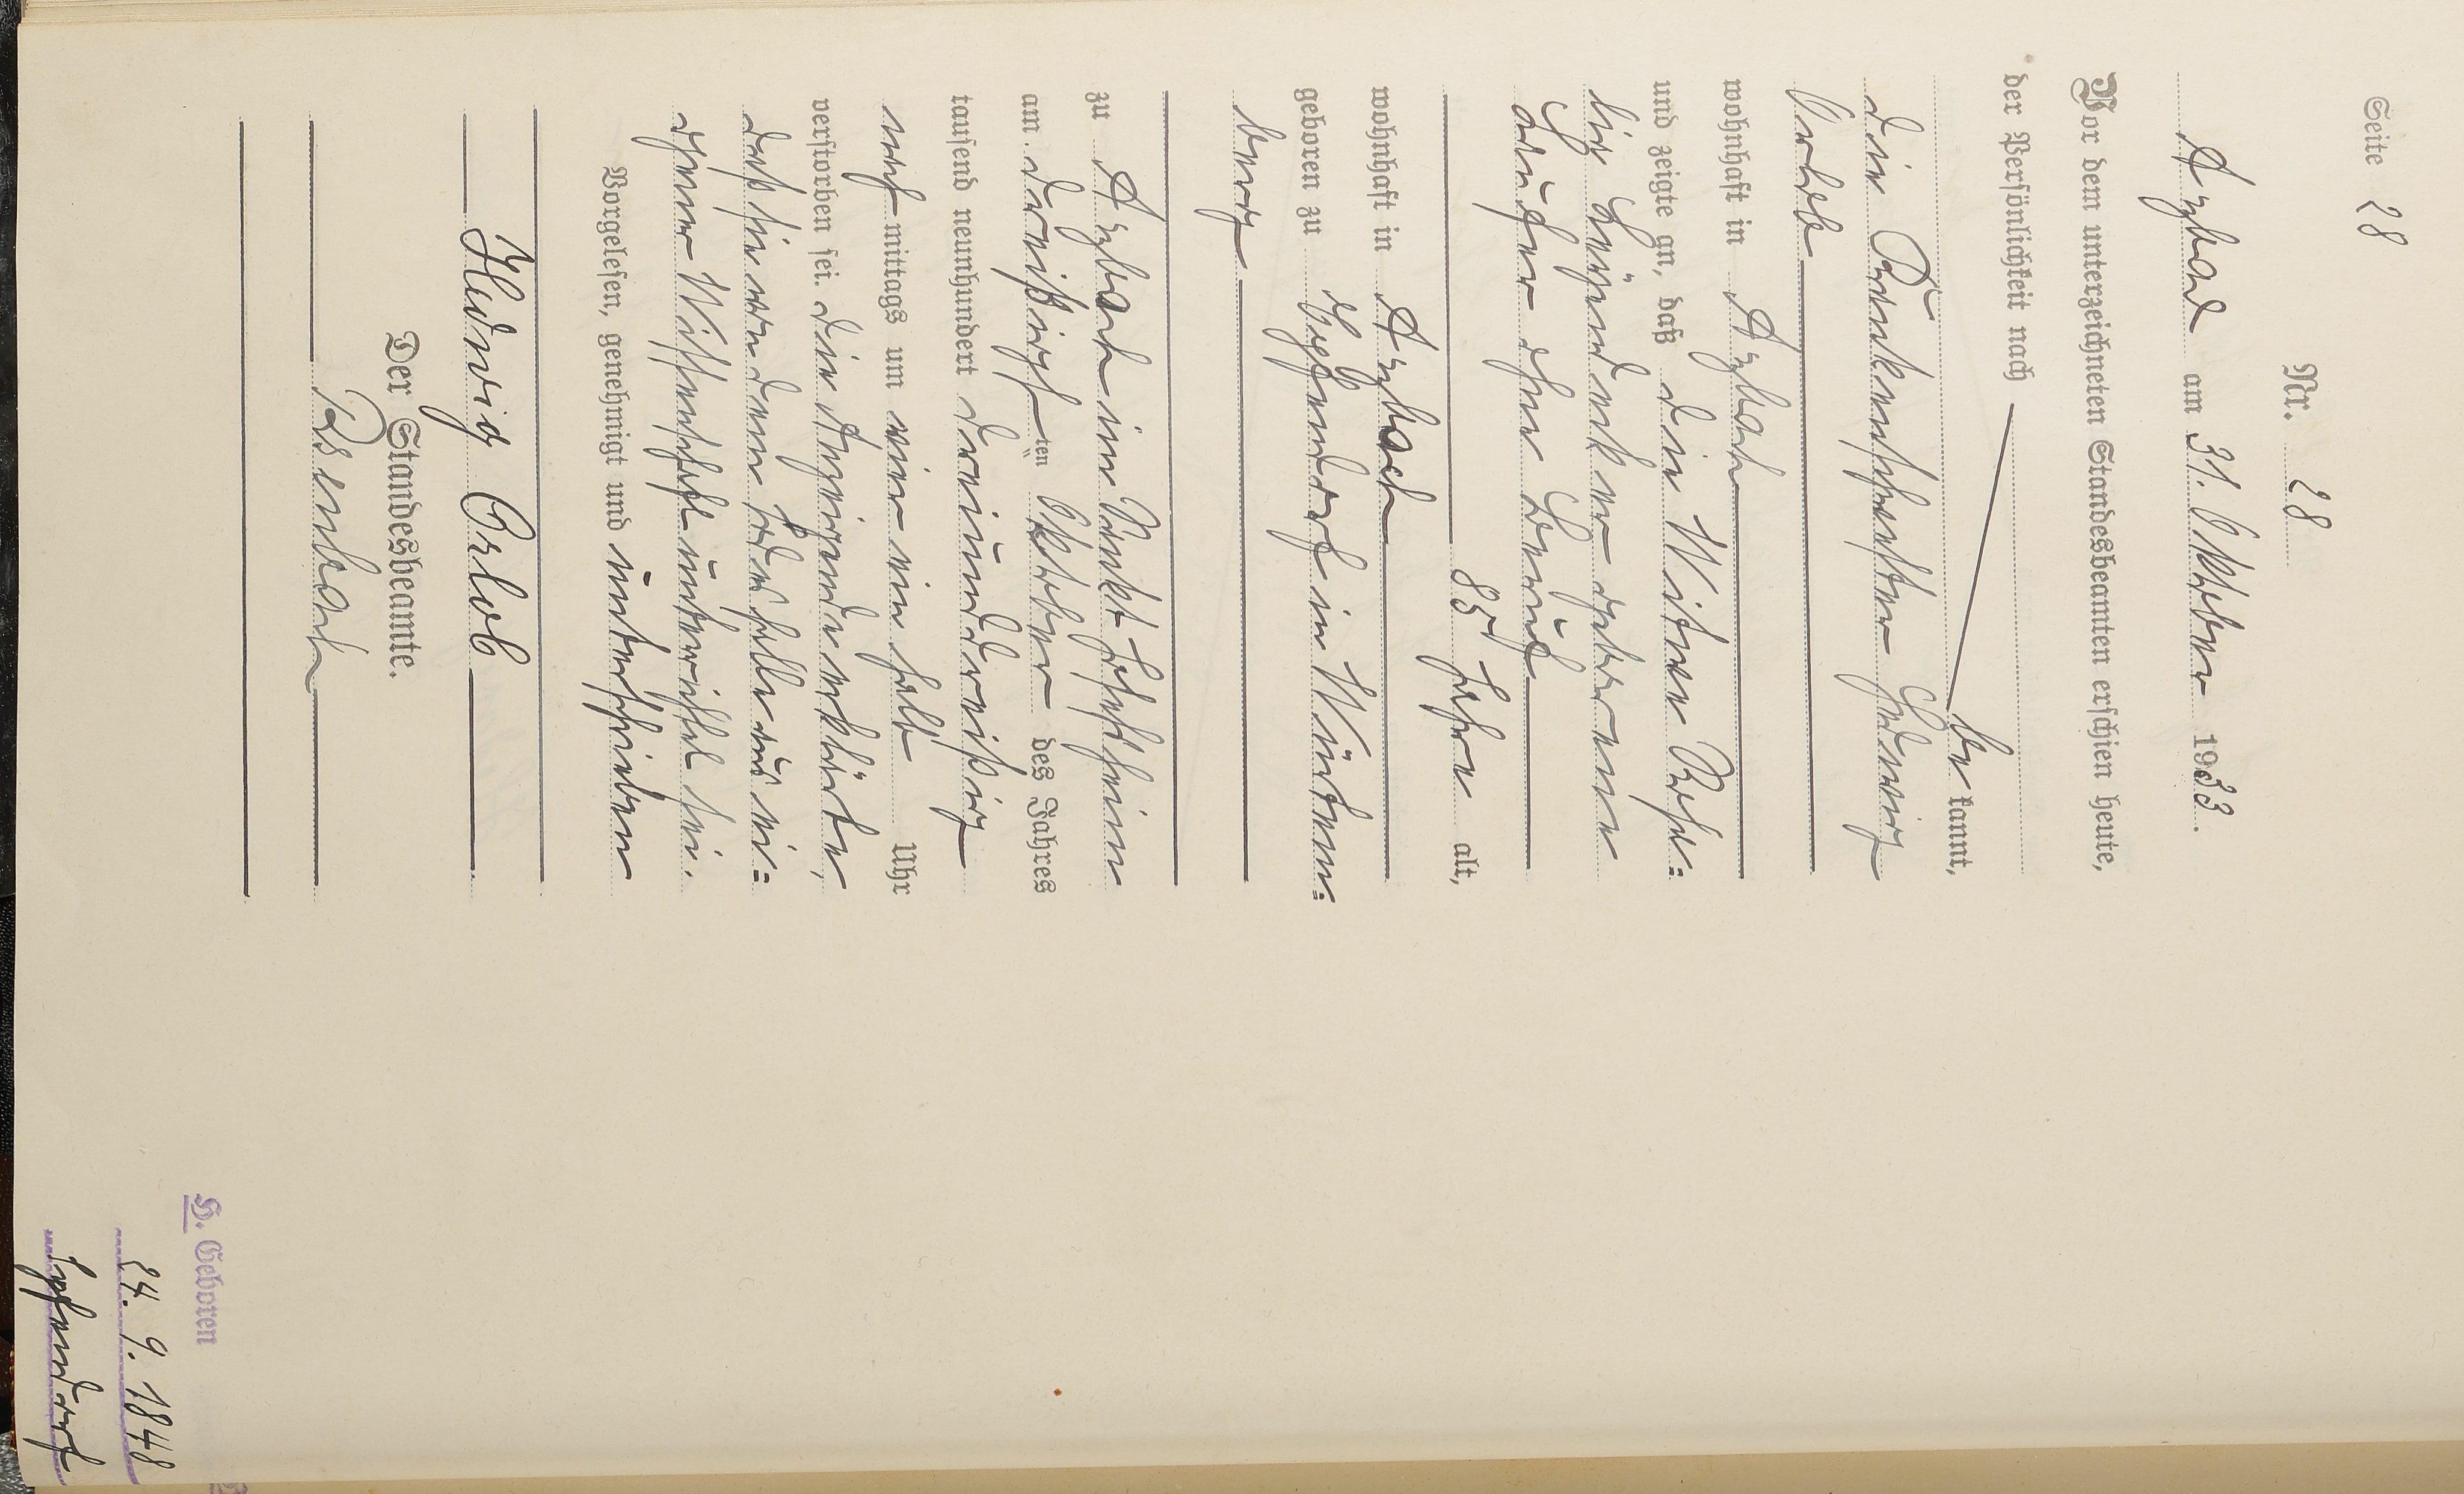 Seite 28
Nr. 28
Arzbach am 31. Oktober 1933.
Vor dem unterzeichneten Standesbeamten erschien heute,
der Persönlichkeit nach
be kannt,
die Krankenschwester Hedwig
Orlob
wohnhaft in Arzbach
und zeigte an, daß die Witwe Rosa=
lie geborene
ohne Beruf
85 Jahre alt,
wohnhaft in Arzbach
geboren zu Epfendorf in Würtem=
berg
zu Arzbach im Sankt Josefheim
am dreißigs ten Oktober des Jahres
tausend neunhundert dreiunddreißig
nach mittags um vier ein halb Uhr
verstorben sei. Die Anzeigende erklärte,
daß sie von dem Todesfalle aus ei=
gener Wissenschaft unterrichtet sei.
Vorgelesen, genehmigt und unterschrieben
Hedwig Orlob
Der Standesbeamte.
H. Geboren
24. 9. 1848
Epfendorf